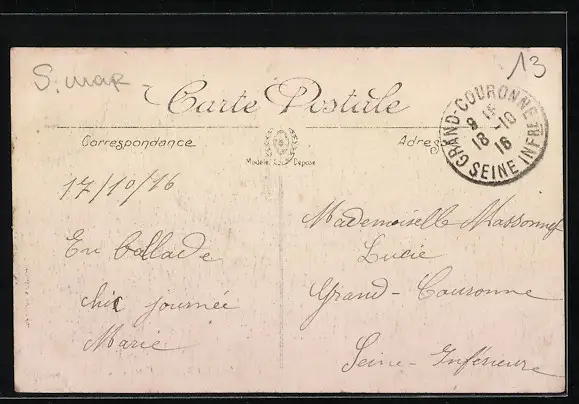 S. mar
13
Carte Postale
Correspondance
Adres
Modèle Dépose
GRAND-COURONNE
8 15
18 -10
16
SEINE INFRE
17/10/16
En ballade
chic journée
Marie
Mademoiselle Massonnet
Lucie
Grand-Couronne
Seine-Inférieure